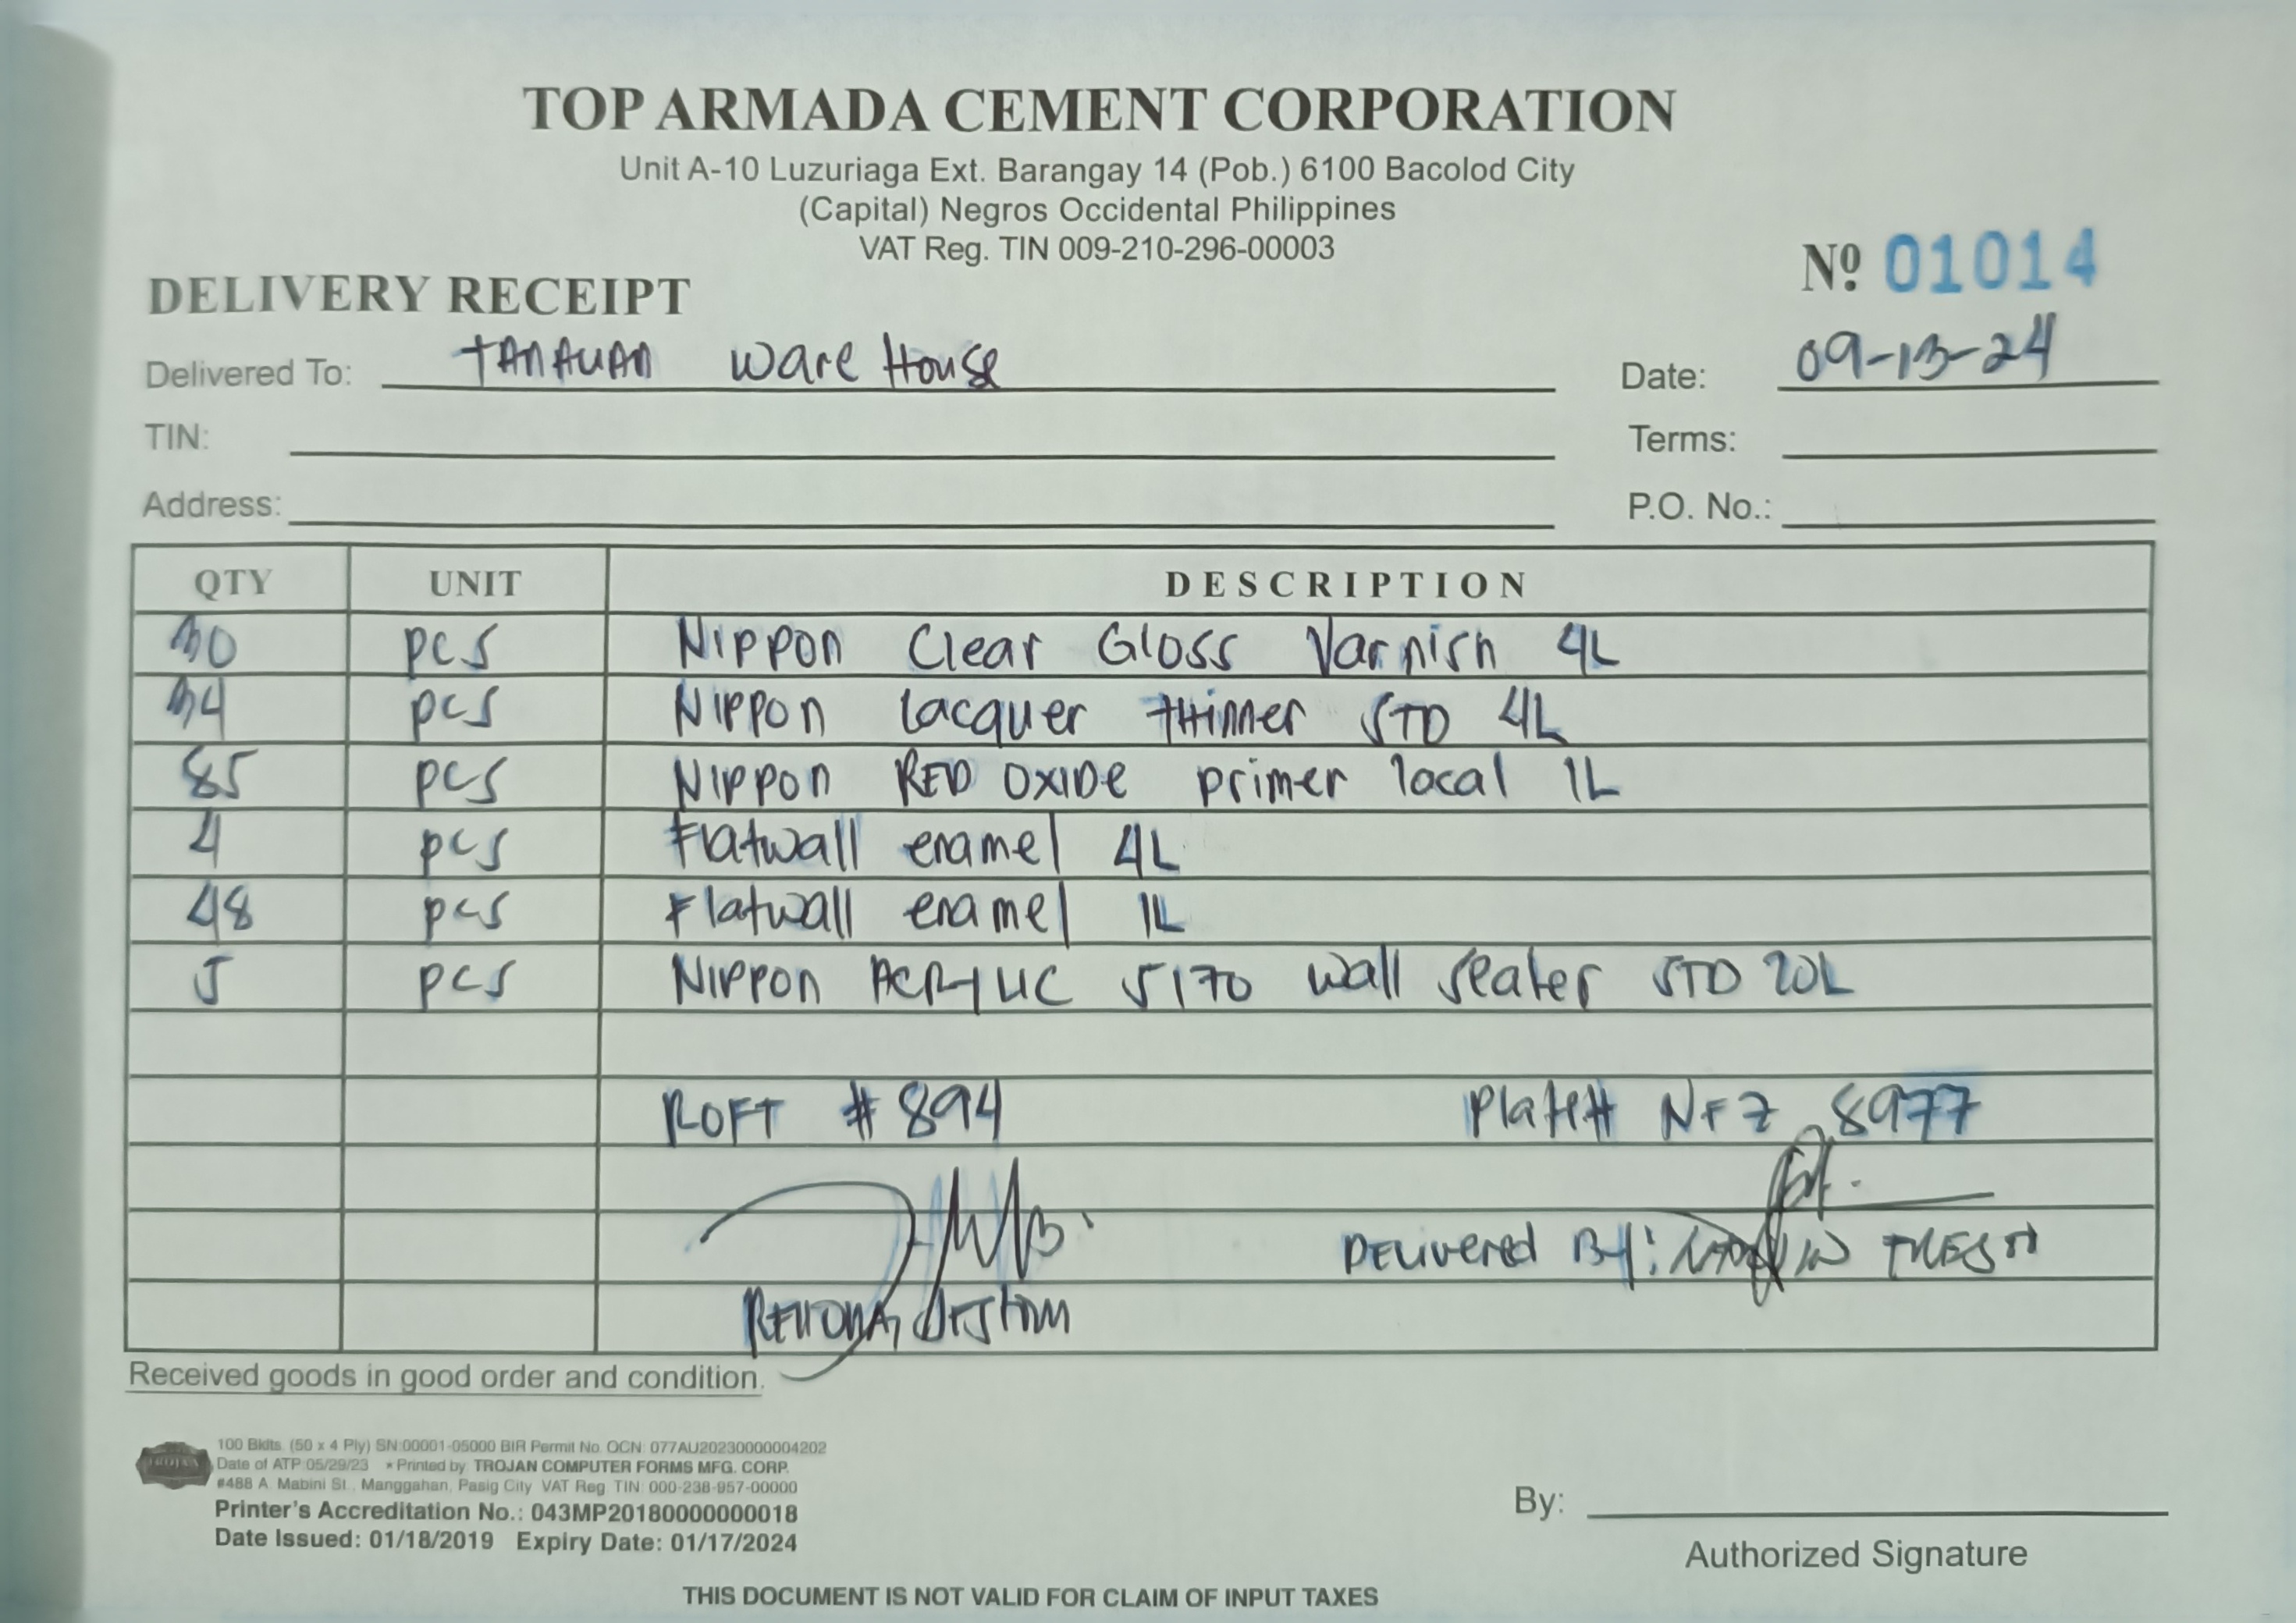 TOP ARMADA CEMENT CORPORATION
Unit A-10 Luzuriaga Ext. Barangay 14 (Pob.) 6100 Bacolod City
(Capital) Negros Occidental Philippines
VAT Reg. TIN 009-210-296-00003
Nº 01014
DELIVERY RECEIPT
Delivered To: TANAUAN WareHouse
Date: 09-13-24
TIN:
Terms:
Address:
P.O. No.:
QTY UNIT DESCRIPTION
30 pcs Nippon Clear Gloss Varnish 4L
34 pcs Nippon Lacquer thinner STD 4L
85 pcs Nippon RED OXIDE primer local 1L
4 pcs Flatwall enamel 4L
48 pcs Flatwall enamel 1L
5 pcs Nippon ACRYLIC 5170 wall sealer STD 20L
ROFT # 894 Plate# NFZ 8977
DELIVERED By:
Received goods in good order and condition.
TROJAN
100 Bklts. (50 x 4 Ply) SN:00001-05000 BIR Permit No. OCN: 077AU20230000004202
Date of ATP:05/29/23 * Printed by: TROJAN COMPUTER FORMS MFG. CORP.
#488 A. Mabini St., Manggahan, Pasig City VAT Reg. TIN: 000-238-957-00000
Printer's Accreditation No.: 043MP20180000000018
Date Issued: 01/18/2019 Expiry Date: 01/17/2024
By:
Authorized Signature
THIS DOCUMENT IS NOT VALID FOR CLAIM OF INPUT TAXES